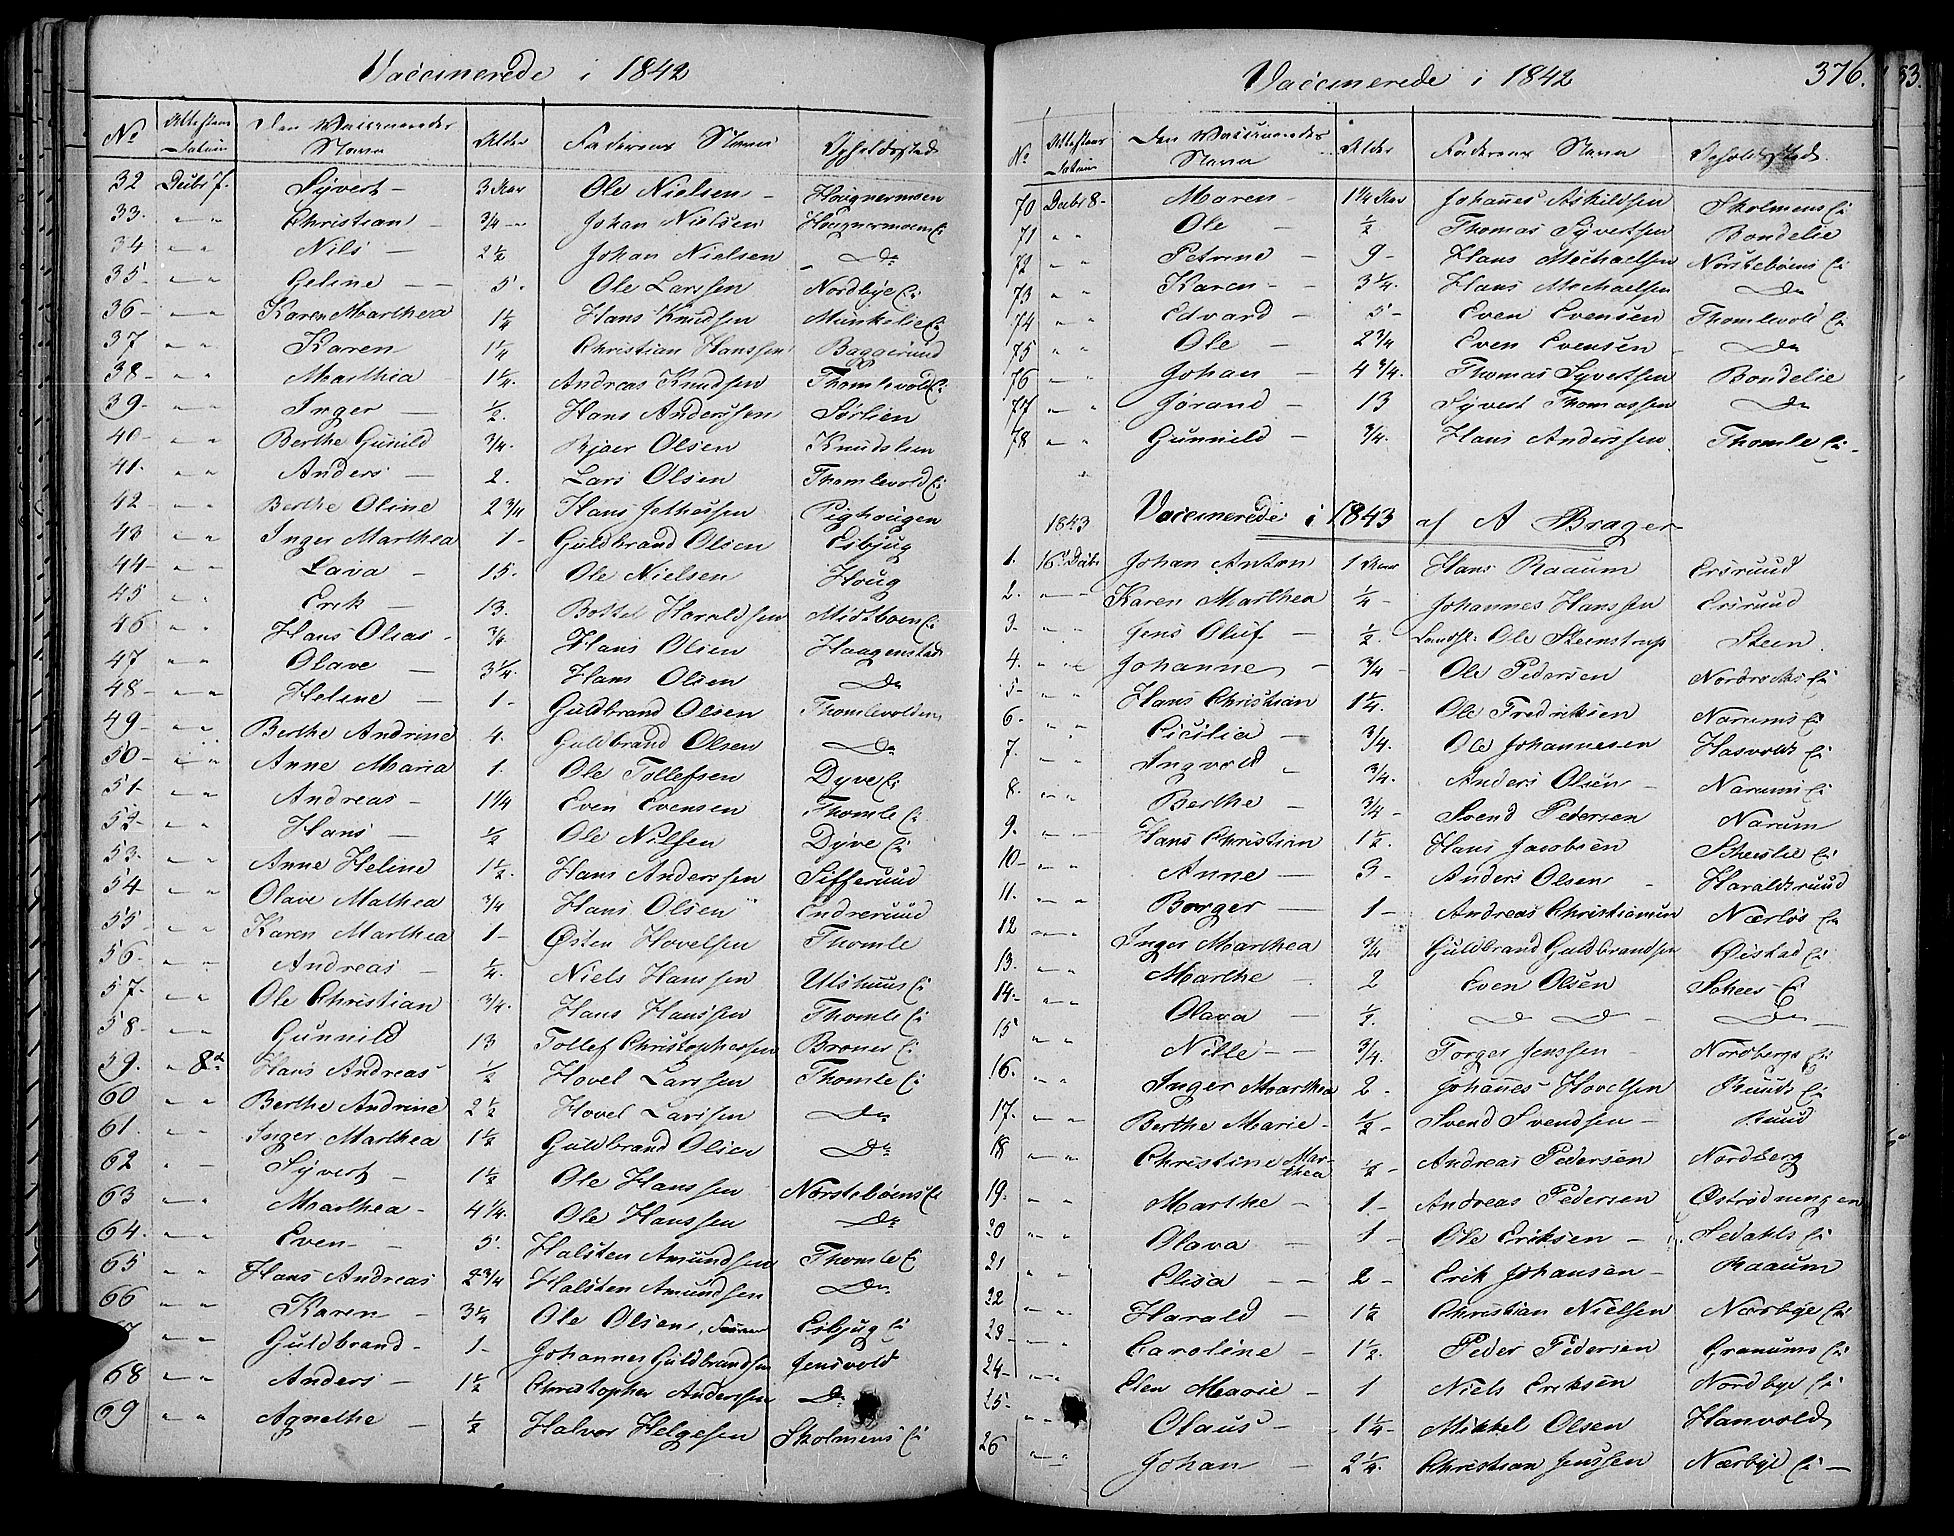 Vaccinerede i 1842
No Attestens Datum Den Vaccineredes Navn Alder Faderens Navn Opholdssted
32 Dubs 7. Syvert - 3 Aar Ole Nielsen - Hougnermoen
33. " " Christian - 3/4 - Johan Nielsen Hougnermoen Ei
34 " " Nils - 2 1/2 Johan Nielsen Do
35 " " Geline - - 5. Ole Larssen Nordbye Ei
36 - " " Karen Marthea 1 1/4 Hans Knudsen Munkelie Ei
37 " " Karen 1 1/4 Christian Hanssen Baggerud
38 - " " Marthea - 1 1/4. Andreas Knudsen Thomlevold Ei
39 - " " Inger - 1/2. Hans Anderssen Sørlien
40 - " " Berthe Gunild 3/4. Olsen Knudslien
41. " " Anders - 2. Lars Olsen Thomlevold Ei
42 - " " Berthe Oline 2 3/4 Hans Pighougen
43 " " Inger Marthea 1 - Guldbrand Olsen Esbjug
44 - " " Lava - 15. Ole Nielsen Houg
45 " " Erik - 13. Bottel Haraldsen Midtboen Ei
46 " " Hans Olsen - 3/4 Hans Olsen Haagenstad
47 " " Olave - 3 1/4 Hans Olsen Do
48 - " " Heline - 1 - Guldbrand Olsen Thomlevolden
49 - " " Berthe Andrine 4. Guldbrand Olsen Do
50 - " " Anne Maria 1. Ole Tollefsen Dyve Ei
51 - " " Andreas - 1 1/4 Even Evensen Thomle Ei
52 - " " Hans - 1/2 Ole Nilsen Dyve Ei
53. " " Anne Heline 1 1/2. Hans Anderssen Sifferuud
54 " " Olave Mathea 3/4 Hans Olsen Endreruud
55 - " " Karen Marthea 1 - Østen Hovelsen Thomle
56. " " Andreas - 1/4 Niels Hanssen Ulshuus Ei
57. " " Ole Christian 3/4. Hans Hanssen Thomle Ei
58 - " " Gunnild 13 Tollef Christophersen Broner Ei
59. " 8de Hans Andreas 1/2 Hovel Larssen Thomle Ei
60 " " Berthe Andrine 2 1/2 Hovel Larssen Do
61. " " Inger Marthea 1 1/2 Guldbrand Olsen Do
62 " - Syvert - 1 1/2 Ole Hanssen Norstebøens Ei
63 " " Marthea - 4 1/4. Ole Hanssen Do
64. " " Even - - 5. Halsten Amundsen Thomle Ei
65 " " Hans Andreas 2 3/4 Halsten Amundsen Do
66 " " Karen - 3 1/4 Ole Olsen, Esbjug Ei
7 " " Guldbrand - 1 - Johannes Guldbrandsen Jensvold
68 " " Anders - 1 1/2 Christopher Anderssen Do
69 " " Agnethe - 1/2 Halvor Helgesen Skolmens Ei
Vaccinerede i 1842 376.
53.
No Attestens Datum Den Vaccineredes Navn Alder Faderens Navn Opholdssted.
70 Dubs 8 - Maren - 1 1/4 Aar Johannes Askildsen Skolmens Ei
71 " " Ole - 1/2 Thomas Syvertsen Bondelie
72 " " Petrine - 9 - Hans Mechaelsen Norstebøens Ei
73 " " Karen - - 3 1/4. Hans Mechaelsen Do
74 " " Edvard - 5 - Even Evensen Thomlevold Ei
75 " " Ole - 2 3/4 Even Evensen - Do
76 " " Johan - 4 3/4. Thomas Syvertsen Bondelie
77 " " Jørand - 13 Syvert Thomassen Do
78. " " Gunnild - 3/4. Hans Anderssen Thomle Ei -
1843 Vaccinerede i 1843 af A Brager
1. 16 Dubs Johan Anton 1 Aar Hans Raaum Ersruud
2. " " Karen Marthea 1/4 - Johannes Hanssen Ersruud
3. " " Jens Oluf - 1/2. Landh: Ole Steenstrup Steen.
4. " " Johanne - 3/4 - Ole Pedersen Ei
5 - " " Hans Christian 1 1/4. Ole Fredriksen Narums Ei
6. " " Cicilia - 3/4. Ole Johannesen Hasvolds Ei
7. " " Ingvold - 3/4. Anders Olsen - Narums Ei
8. " " Berthe - 3/4 - Svend Pedersen Narum
9. " " Hans Christian 1 1/2. Hans Jacobsen Skeislie Ei
10 - " " Anne - 3 - Anders Olsen - Haraldsruud
11. " " Borger - 1 - Andreas Christiansen Nærløs Ei
12 " " Inger Marthea 3/4 Guldbrand Guldbrandsen Øistad Ei
13. " " Marthe - 2 Even Olsen Schees - Ei
14 - " " Olava - 1/2. Do Do Do
15 " " Nille - - 3/4. Torger Jenssen - Nordbergs Ei
16. " " Inger Marthea 2 - Johannes Hovelsen Ruuds Ei
17. " " Berthe Marie - 1/2 - Svend Svendsen - Ruud
18 " " Christine Marthea 1/2 - Andreas Pedersen Nordberg
19. " " Marthe - 1 - Andreas Pedersen Østrødningen
20 " " Olava - 1 - Ole Eriksen - Sedahls Ei
21 " " Elisa - - 2 - Erik Johansen - Raaum
22 " " Harald - 1 1/2 Christian Nielsen Nordbye Ei
23 - " " Caroline - 1 1/2. Peder Pedersen Granums Ei
24 - " " Elen Marie - 1 Niels Eriksen Nordbye Ei
25 - " " Olaus - 1 1/4 - Mikkel Olsen Hanvold
26 " " Johan - 2 1/4. Christian Jenssen Nærbye Ei -